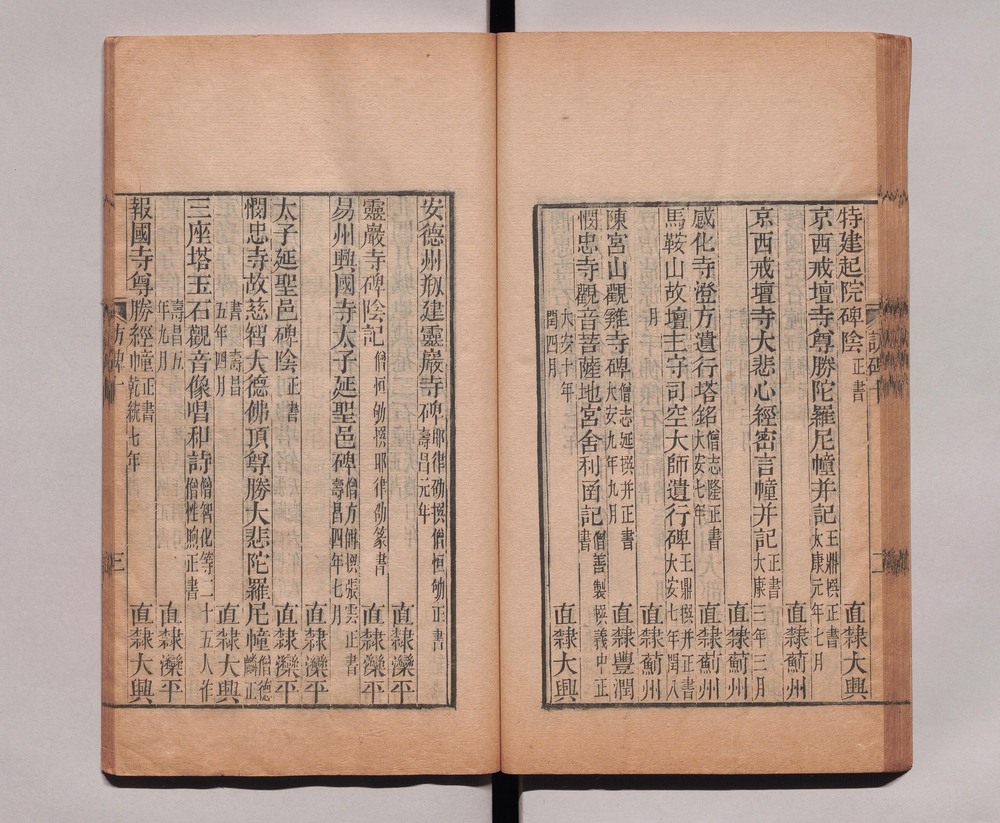 特建起院碑陰正書
直隸大興
京西戒壇寺尊勝陀羅尼幢并記王鼎撰正書大康元年七月
直隸薊州
京西戒壇寺大悲心經密言幢并記正書大康三年三月
直隸薊州
感化寺澄方遺行塔銘僧志隆正書大安七年
直隸薊州
馬鞍山故壇主守司空大師遺行碑王鼎撰并正書大安七年閏八月
直隸薊州
陳宮山觀雞寺碑僧志延撰并正書大安九年九月
直隸豐潤
憫忠寺觀音菩薩地宮舍利函記僧善製撰義中正書
大安十年閏四月
直隸大興
安德州刱建靈巖寺碑耶律劭撰僧恒劬正書壽昌元年
直隸灤平
靈巖寺碑陰記僧恒劬撰耶律劭篆書
直隸灤平
易州興國寺太子延聖邑碑僧方傅撰張雲正書壽昌四年七月
直隸灤平
太子延聖邑碑陰正書
直隸灤平
憫忠寺故慈智大德佛頂尊勝大悲陀羅尼幢僧德麟正書
壽昌五年四月
直隸大興
三座塔玉石觀音像唱和詩僧智化等二十五人作僧性煦正書
壽昌五年九月
直隸灤平
報國寺尊勝經幢正書乾統七年
直隸大興
訪碑
二
訪碑
三